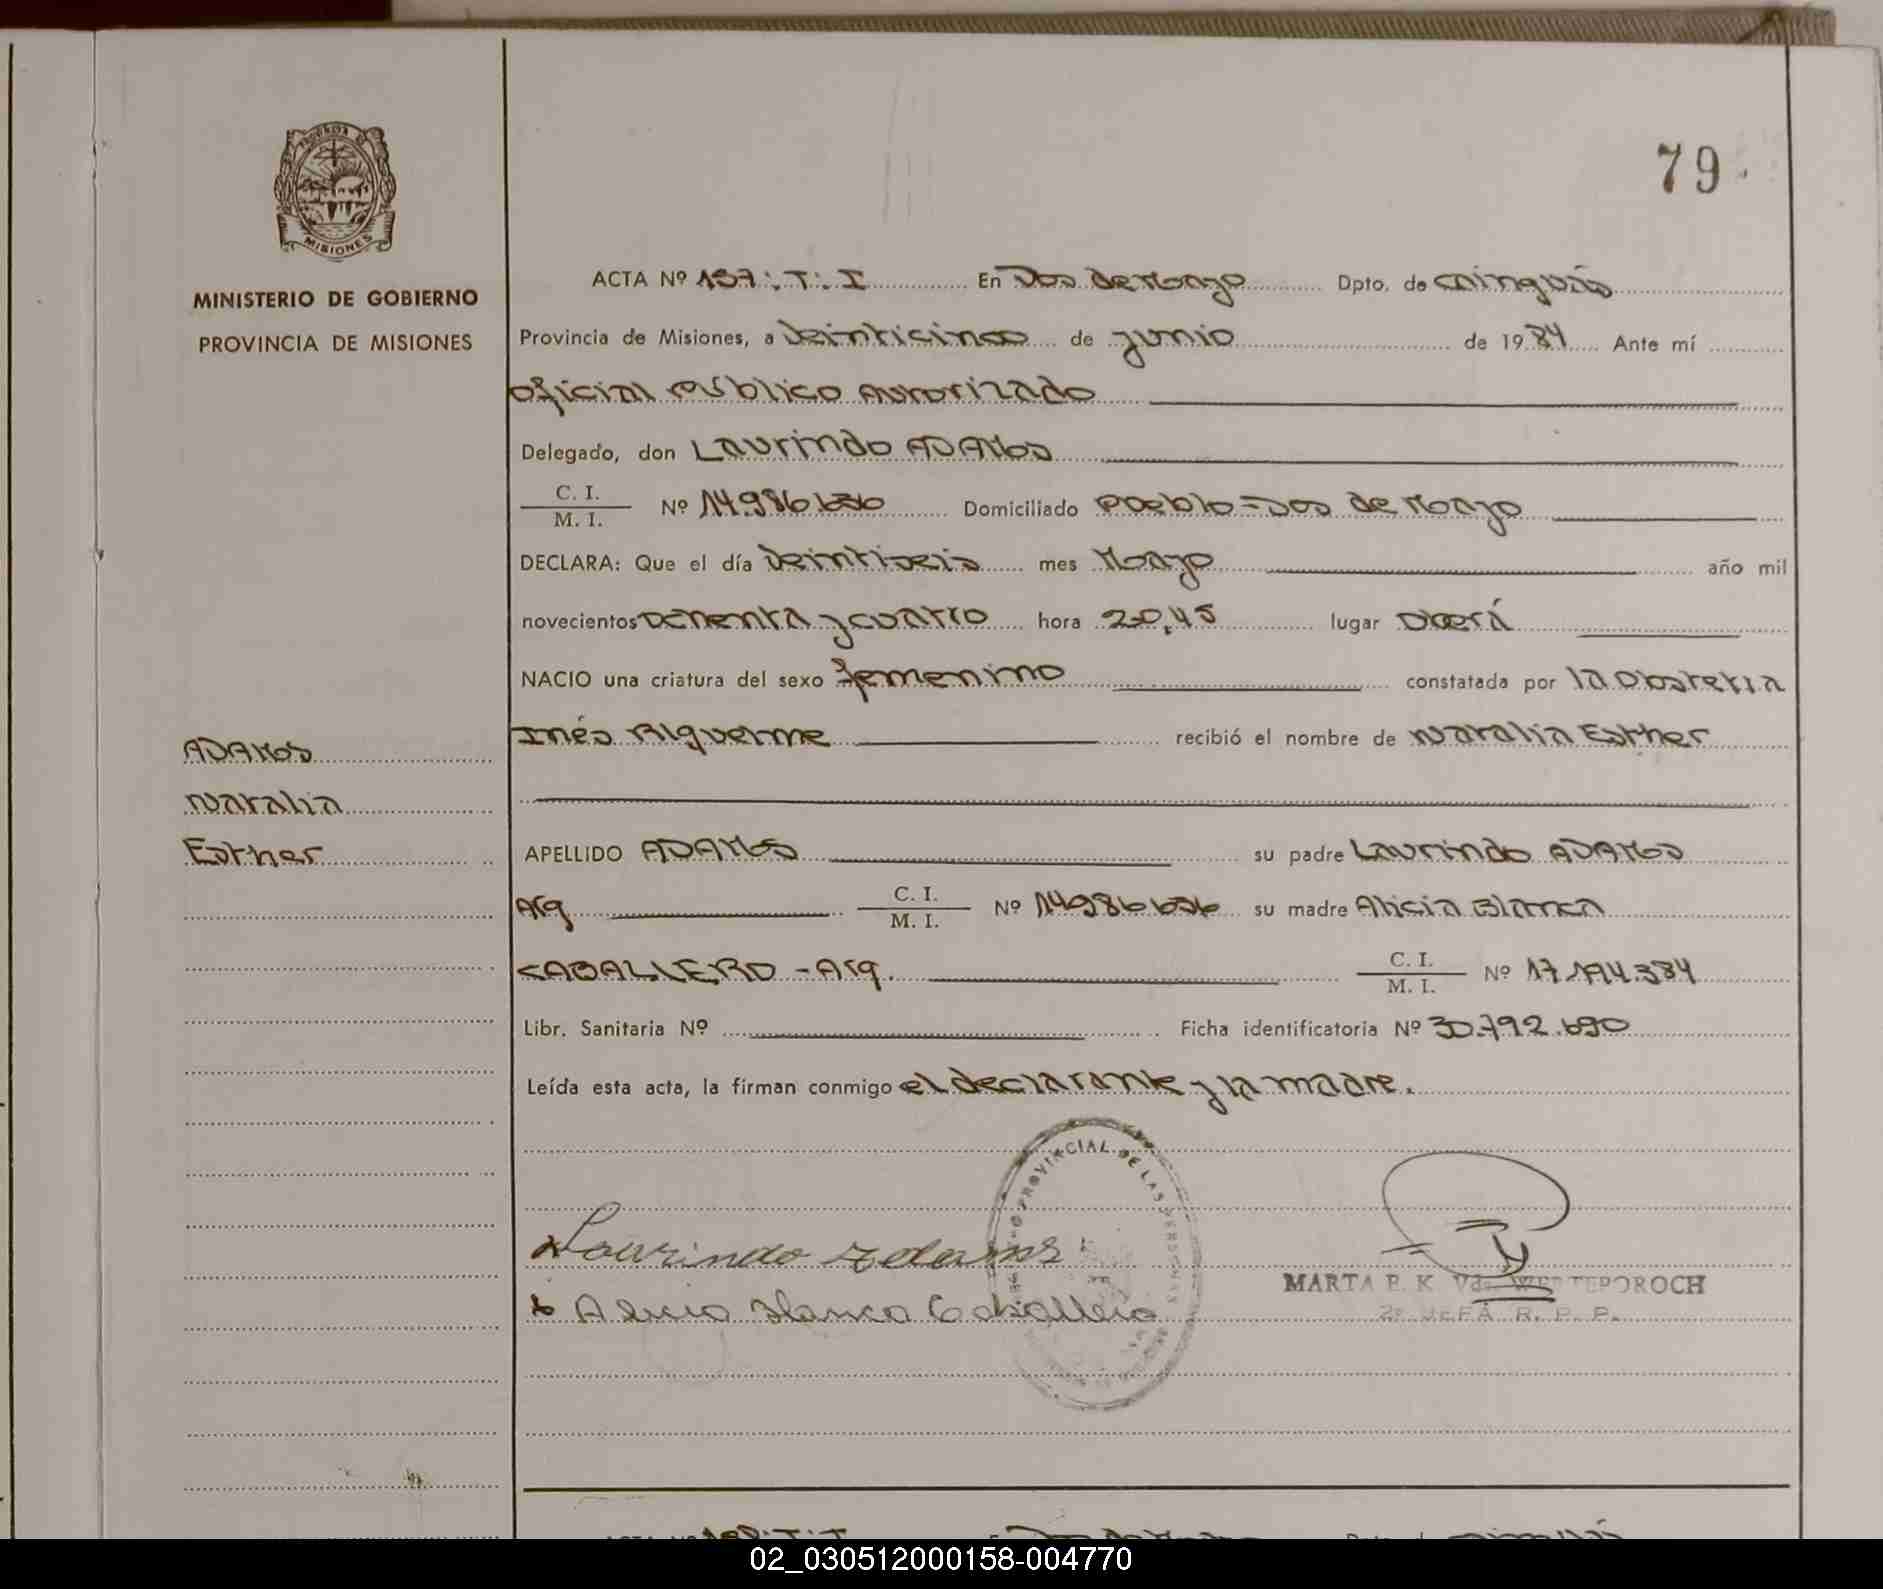 79
MISIONES
MINISTERIO DE GOBIERNO
PROVINCIA DE MISIONES
ADAMOS
Natalia
Esther
ACTA Nº 157: T: I En Dos de Mayo Dpto. de Cainguás
Provincia de Misiones, a Veinticinco de junio de 1984 Ante mí
Oficial Público Autorizado
Delegado, don Laurindo ADAMOS
C. I.
M. I. Nº 14.986.636 Domiciliado Pueblo - Dos de Mayo
DECLARA: Que el día Veintiseis mes Mayo año mil
novecientos ochenta y cuatro hora 20,45 lugar Oberá
NACIO una criatura del sexo femenino constatada por la obstetra
Inés Riquelme recibió el nombre de Natalia Esther
APELLIDO ADAMOS su padre Laurindo ADAMOS
Arg C. I.
M. I. Nº 14986636 su madre Alicia Blanca
CABALLERO - Arg. C. I.
M. I. Nº 17.194.384
Libr. Sanitaria Nº Ficha identificatoria Nº 30.792.690
Leída esta acta, la firman conmigo el declarante y la madre.
PROVINCIAL DE LAS PERSONAS
x Laurindo Adamos
x Alicia Blanca Caballero
MARTA E. K. Vda.
2ª JEFA R. P. P.
02_030512000158-004770